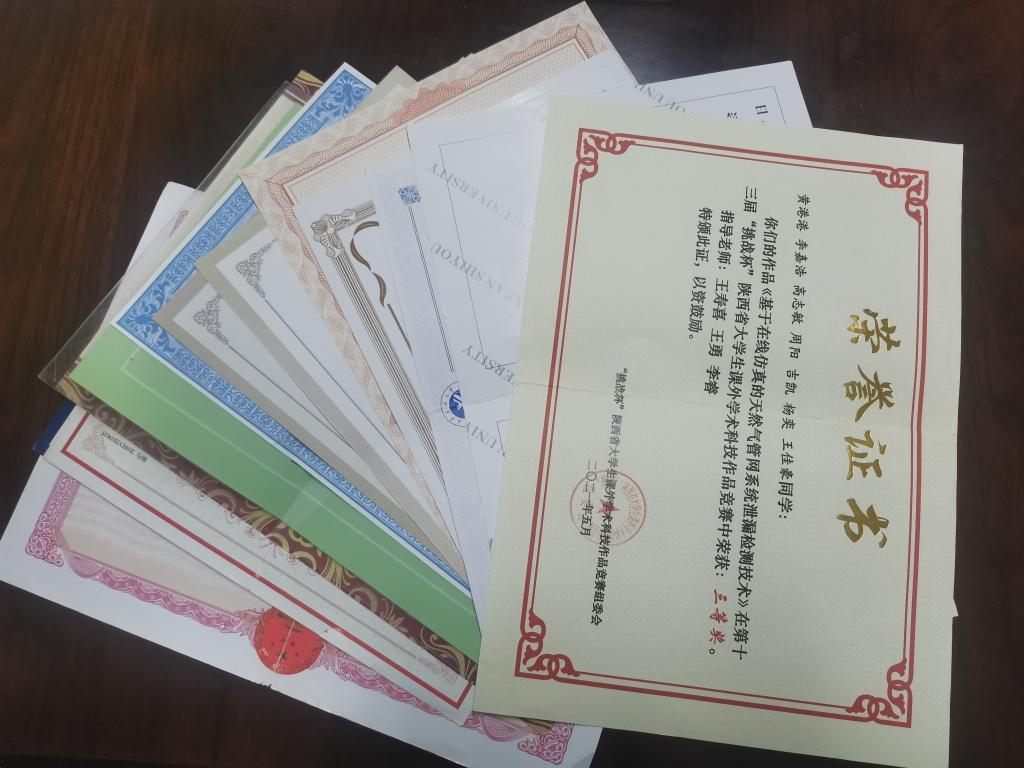 荣誉证书
黄港港 李嘉浩 高志敏 周阳 吉凯 杨奕 王佳豪同学：
你们的作品《基于在线仿真的天然气管网系统泄漏检测技术》在第十
三届“挑战杯”陕西省大学生课外学术科技作品竞赛中荣获：三等奖。
指导老师：王寿喜 王勇 李睿
特颁此证，以资鼓励。
“挑战杯”陕西省大学生课外学术科技作品竞赛组委会
二〇二一年五月
UNIVERSITY
SHIYOU